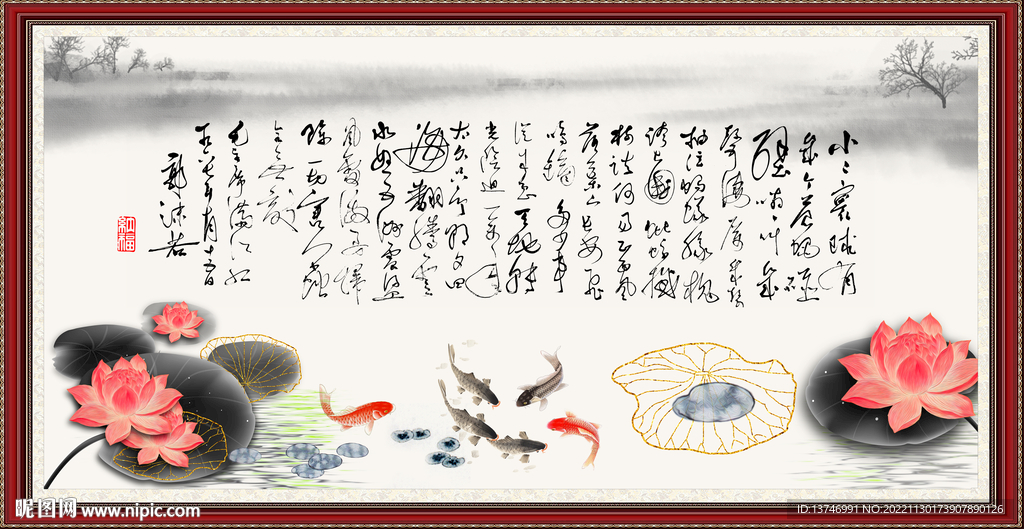 小小寰球有
几个苍蝇碰
壁嗡嗡叫几
声凄厉几声
抽泣蚂蚁缘槐
夸大国蚍蜉撼
树谈何易正西风
落叶下长安飞
鸣镝多少事
从来急天地转
光阴迫一万年
太久只争朝夕四
海翻腾云
水怒五洲震荡
风雷激要扫
除一切害人虫
全无敌
毛主席满江红
郭沫若
昵图网 www.nipic.com
ID:13746991 NO:20221130173907890126